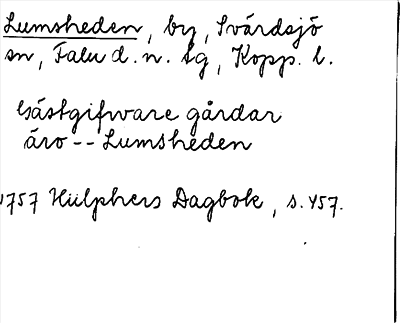 Lumsheden, by, Svärdsjö
sn, Falu d. n. tg, Kopp. l.
Gästgifware gårdar
äro -- Lumsheden
1757 Hülphers Dagbok, s. 457.